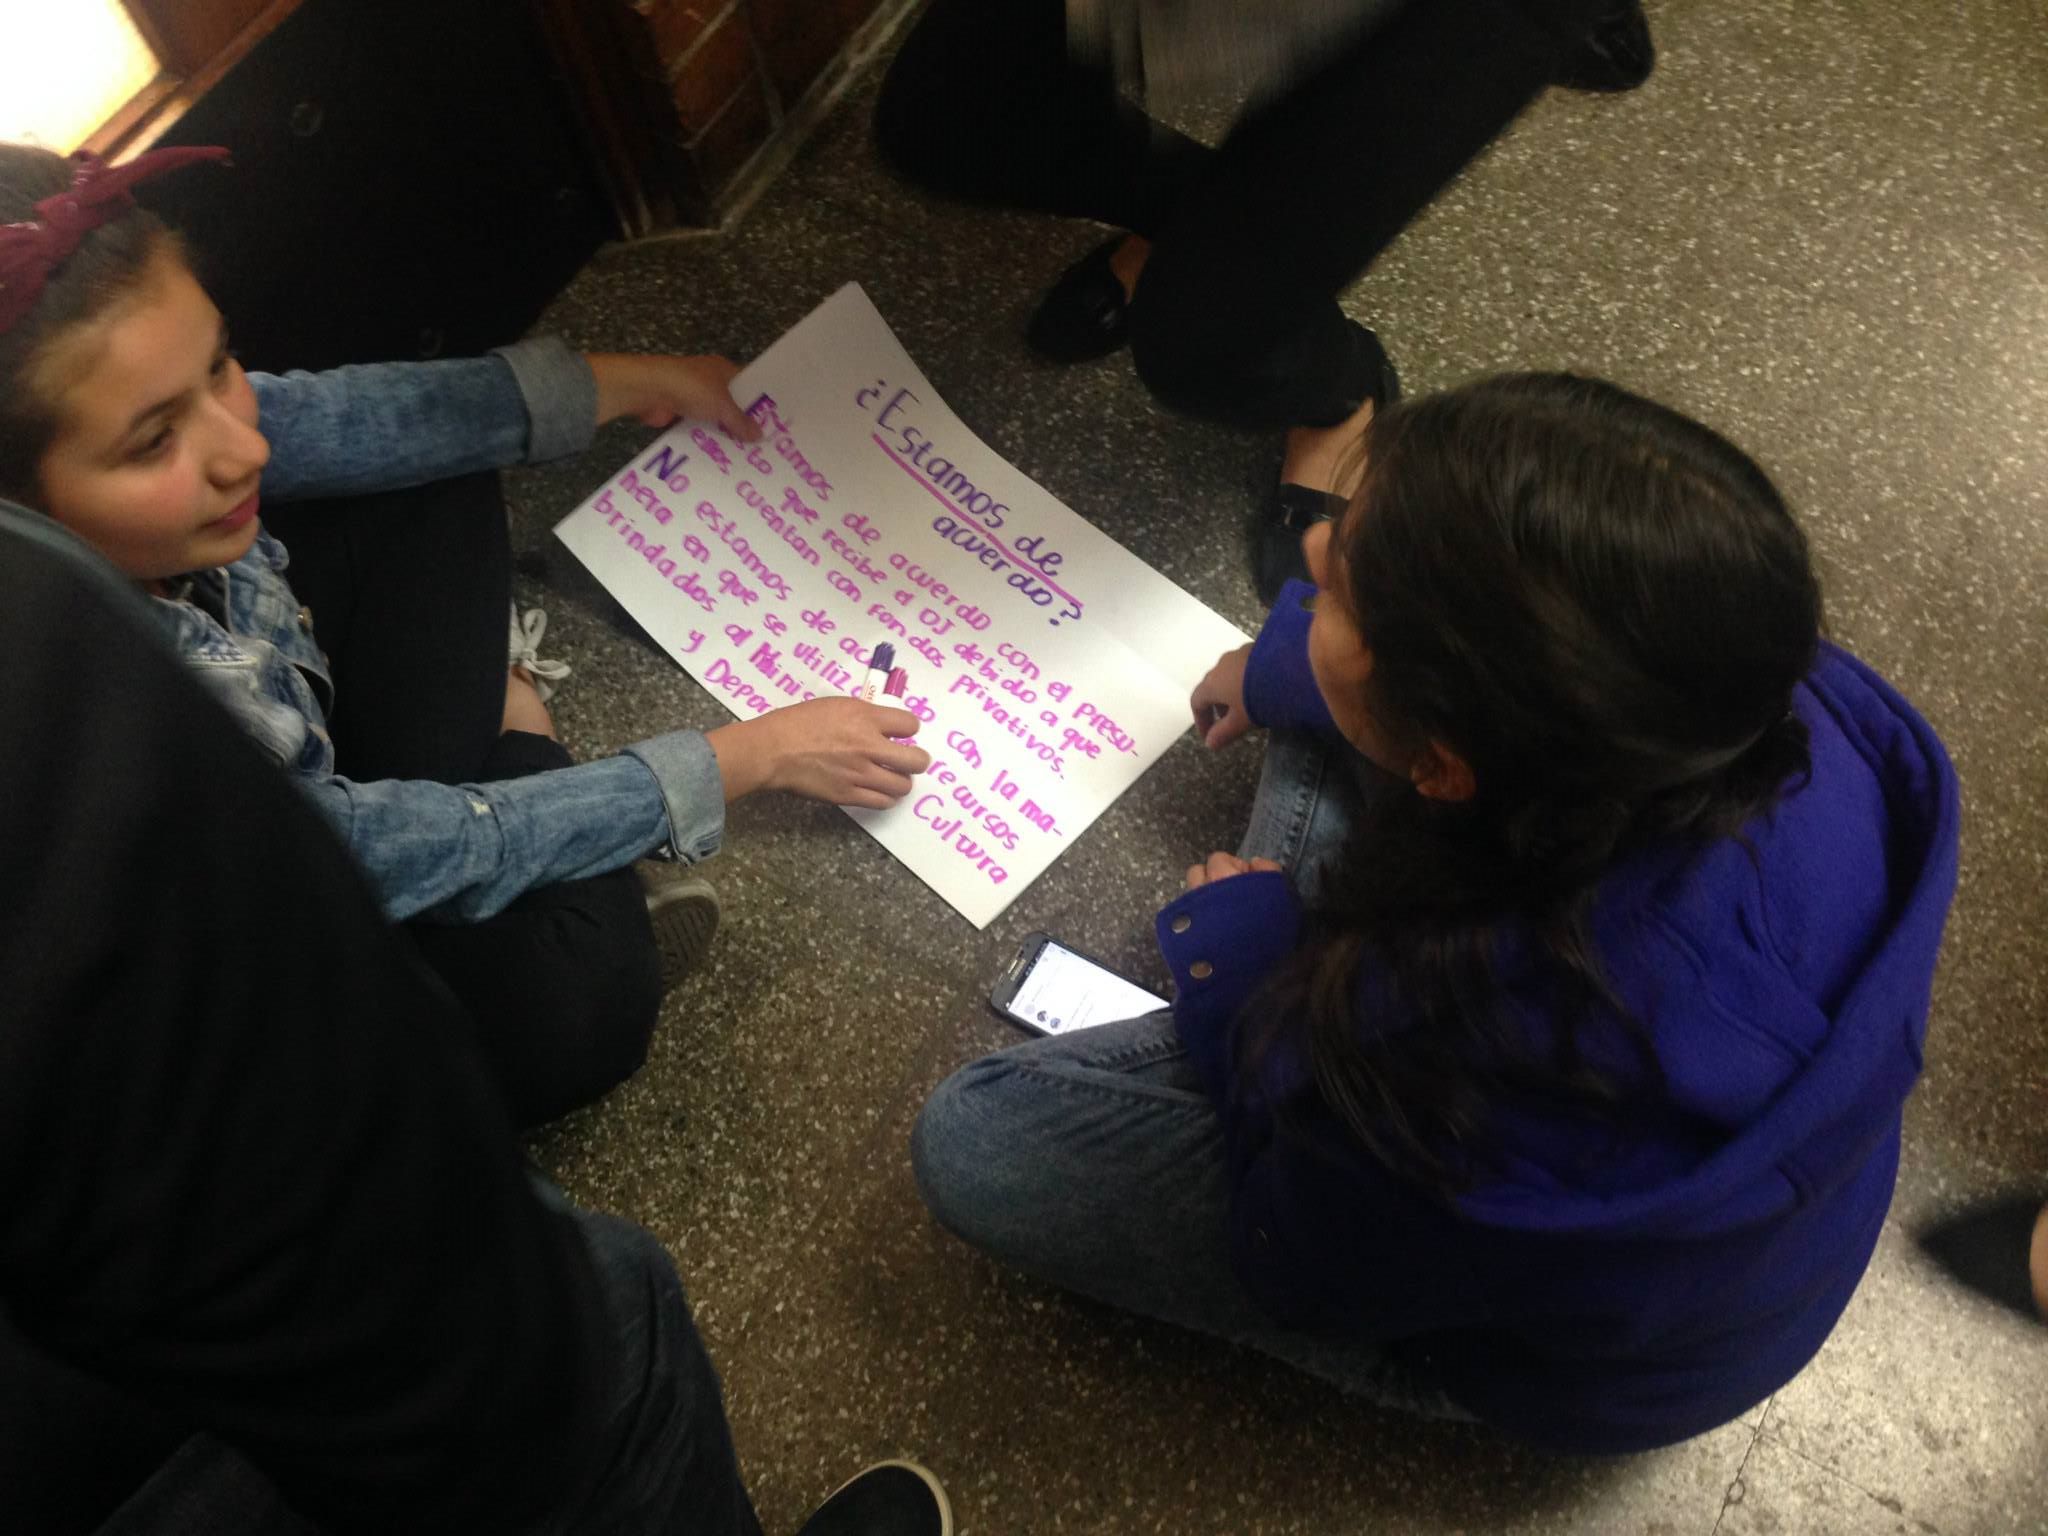 ¿Estamos de
acuerdo?
Estamos de acuerdo con el presu-
to que recibe el DJ debido a que
ellos cuentan con fondos privativos.
No estamos de ac do con la ma-
nera en que se utiliz recursos
brindados al Minis Cultura
y Depor